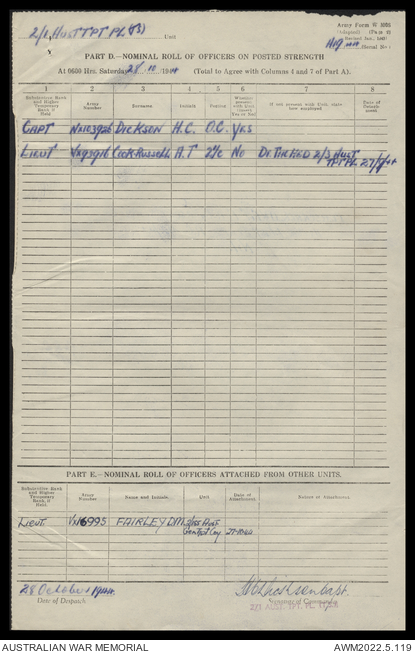 2/1 AUST TPT PL (53)
Unit
Army Form W 3008
(Adapted) (Part D
Revised Jan., 194
PART D.–NOMINAL ROLL OF OFFICERS ON POSTED STRENGTH
At 0600 Hrs. Saturday 28 10 1944 (Total to Agree with Columns 4 and 7 of Part A).
1 2 3 4 5 6 7 8
Substantive Rank and Higher Temporary Rank if Held
Army Number
Surname
Initials
Posting
Whether present with Unit (insert Yes or No)
If not present with Unit, state how employed
Date of Detachment
CAPT NX103926 DICKSON H.C. O.C. YES
LIEUT VX93916 Cook-Russell A.T 2I/C No DETACHED 2/3 AUST
TPT PL
PART E.–NOMINAL ROLL OF OFFICERS ATTACHED FROM OTHER UNITS.
Substantive Rank and Higher Temporary Rank if Held.
Army Number
Name and Initials.
Unit
Date of Attachment
Nature of Attachment
Lieut VX16995 FAIRLEY D.M. Aust
Gen Tpt Coy
28 October 1944
Date of Despatch
Signature of Commander
2/1 AUST. TPT. PL.
AUSTRALIAN WAR MEMORIAL
AWM2022.5.119